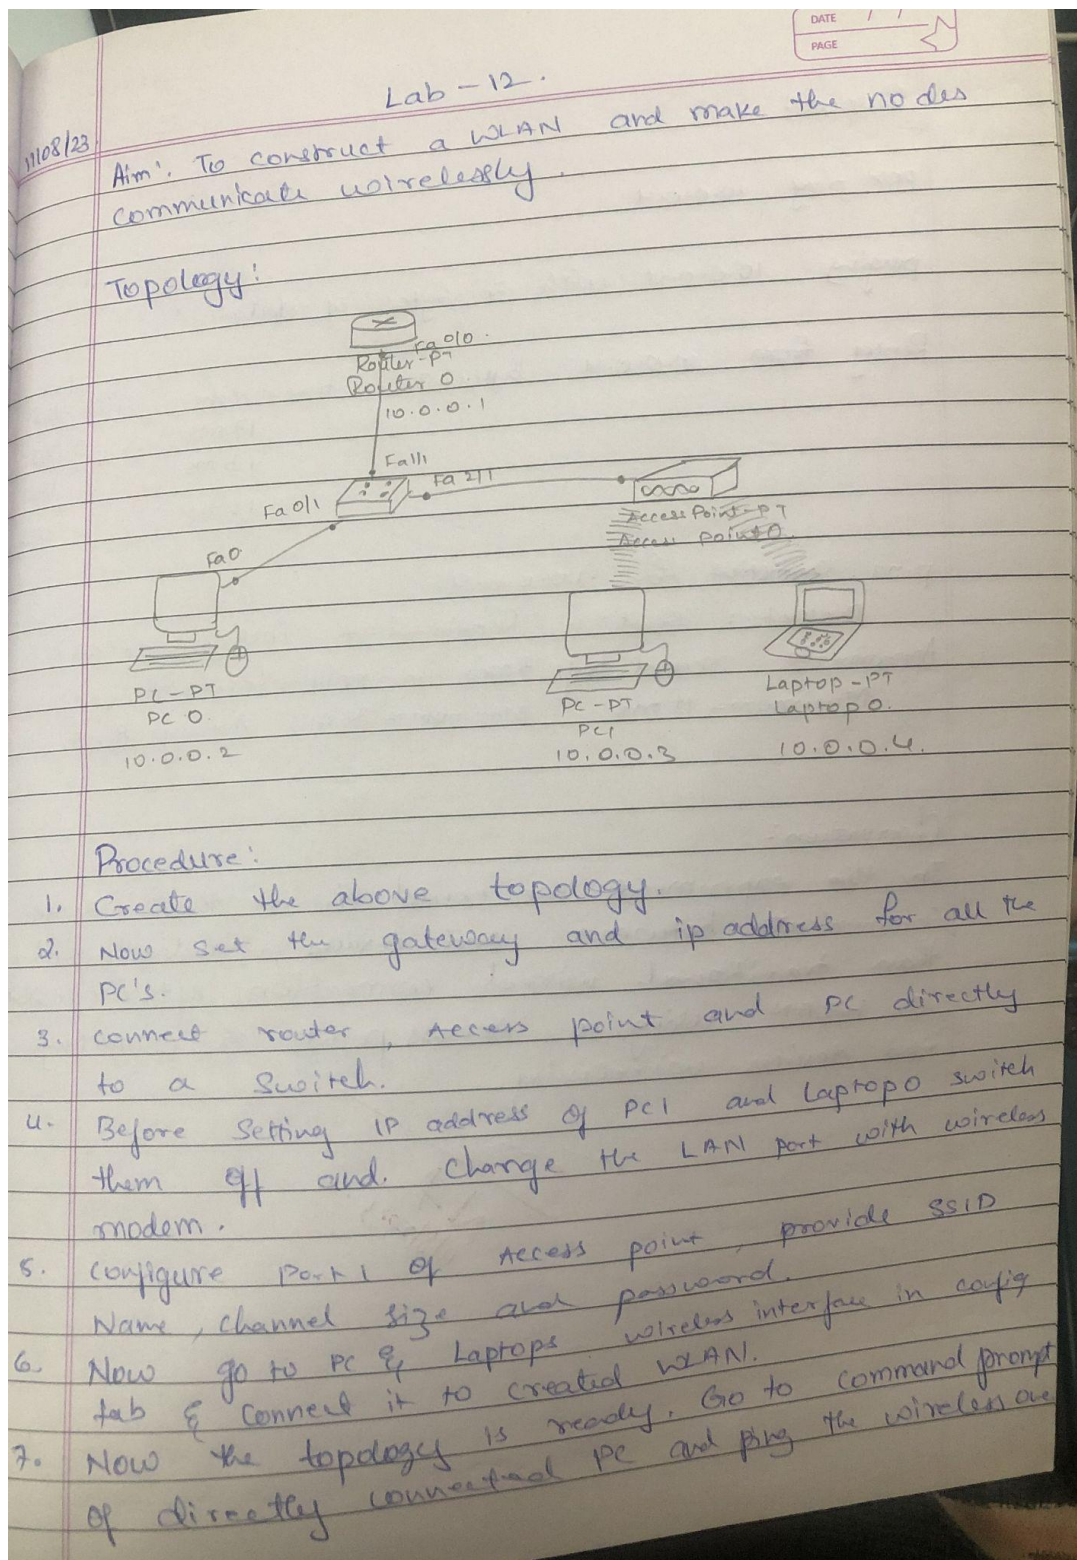 DATE / /
PAGE
Lab - 12.
11/08/23
Aim: To construct a WLAN and make the nodes
communicate wirelessly.
Topology:
Fa 0/0.
Router-PT
Router 0
10.0.0.1
Fa 1/1
Fa 2/1
Fa 0/1
Access Point-PT
Access point 0
Fa 0
PC-PT
PC 0
10.0.0.2
PC-PT
PC1
10.0.0.3
Laptop-PT
Laptop 0.
10.0.0.4.
Procedure:
1. Create the above topology.
2. Now set the gateway and ip address for all the
PC's.
3. connect router, Access point and PC directly
to a Switch.
4. Before Setting IP address of PC1 and Laptop0 switch
them off and. Change the LAN port with wireless
modem.
5. configure Port 1 of Access point, provide SSID
Name, channel size and password.
6. Now go to PC & Laptops wireless interface in config
tab & connect it to created WLAN.
7. Now the topology is ready. Go to command prompt
of directly connected PC and ping the wireless one